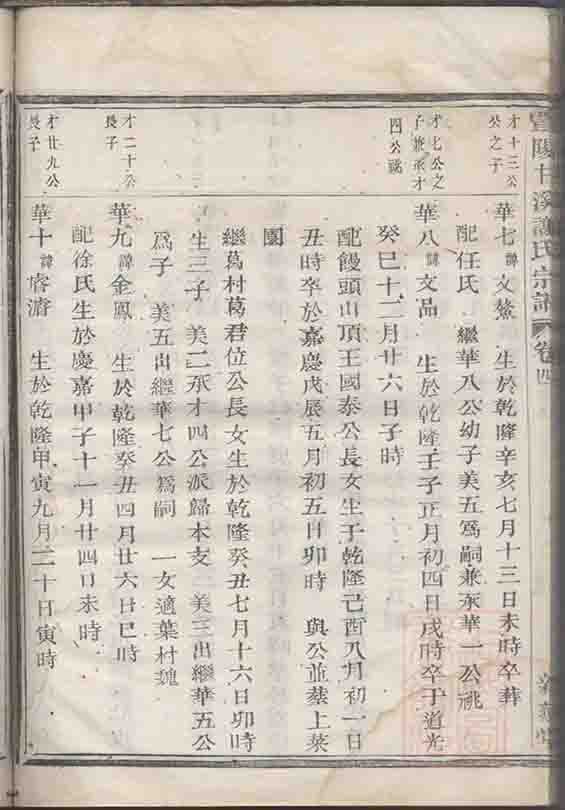 暨陽十溪謝氏宗譜 卷四
才十三公
公之子
華七諱文鰲 生於乾隆辛亥七月十三日未時卒葬
配任氏 繼華八公幼子美五爲嗣兼承華一公祧
才七公之
子兼承才
四公祧
華八諱文品 生於乾隆壬子正月初四日戌時卒于道光
癸巳十二月廿六日子時
配饅頭山頂王國泰公長女生于乾隆己酉八月初一日
丑時卒於嘉慶戊辰五月初五日卯時 與公並葬上菜
園
繼葛村葛君位公長女生於乾隆癸丑七月十六日卯時
生三子 美二承才四公派歸本支 美三出繼華五公
爲子 美五出繼華七公爲嗣 一女適葉村魏
才二十公
長子
華九諱金鳳 生於乾隆癸丑四月廿六日巳時
配徐氏生於慶嘉甲子十一月廿四日未時
才廿九公
長子
華十諱睿濬 生於乾隆甲寅九月二十日寅時